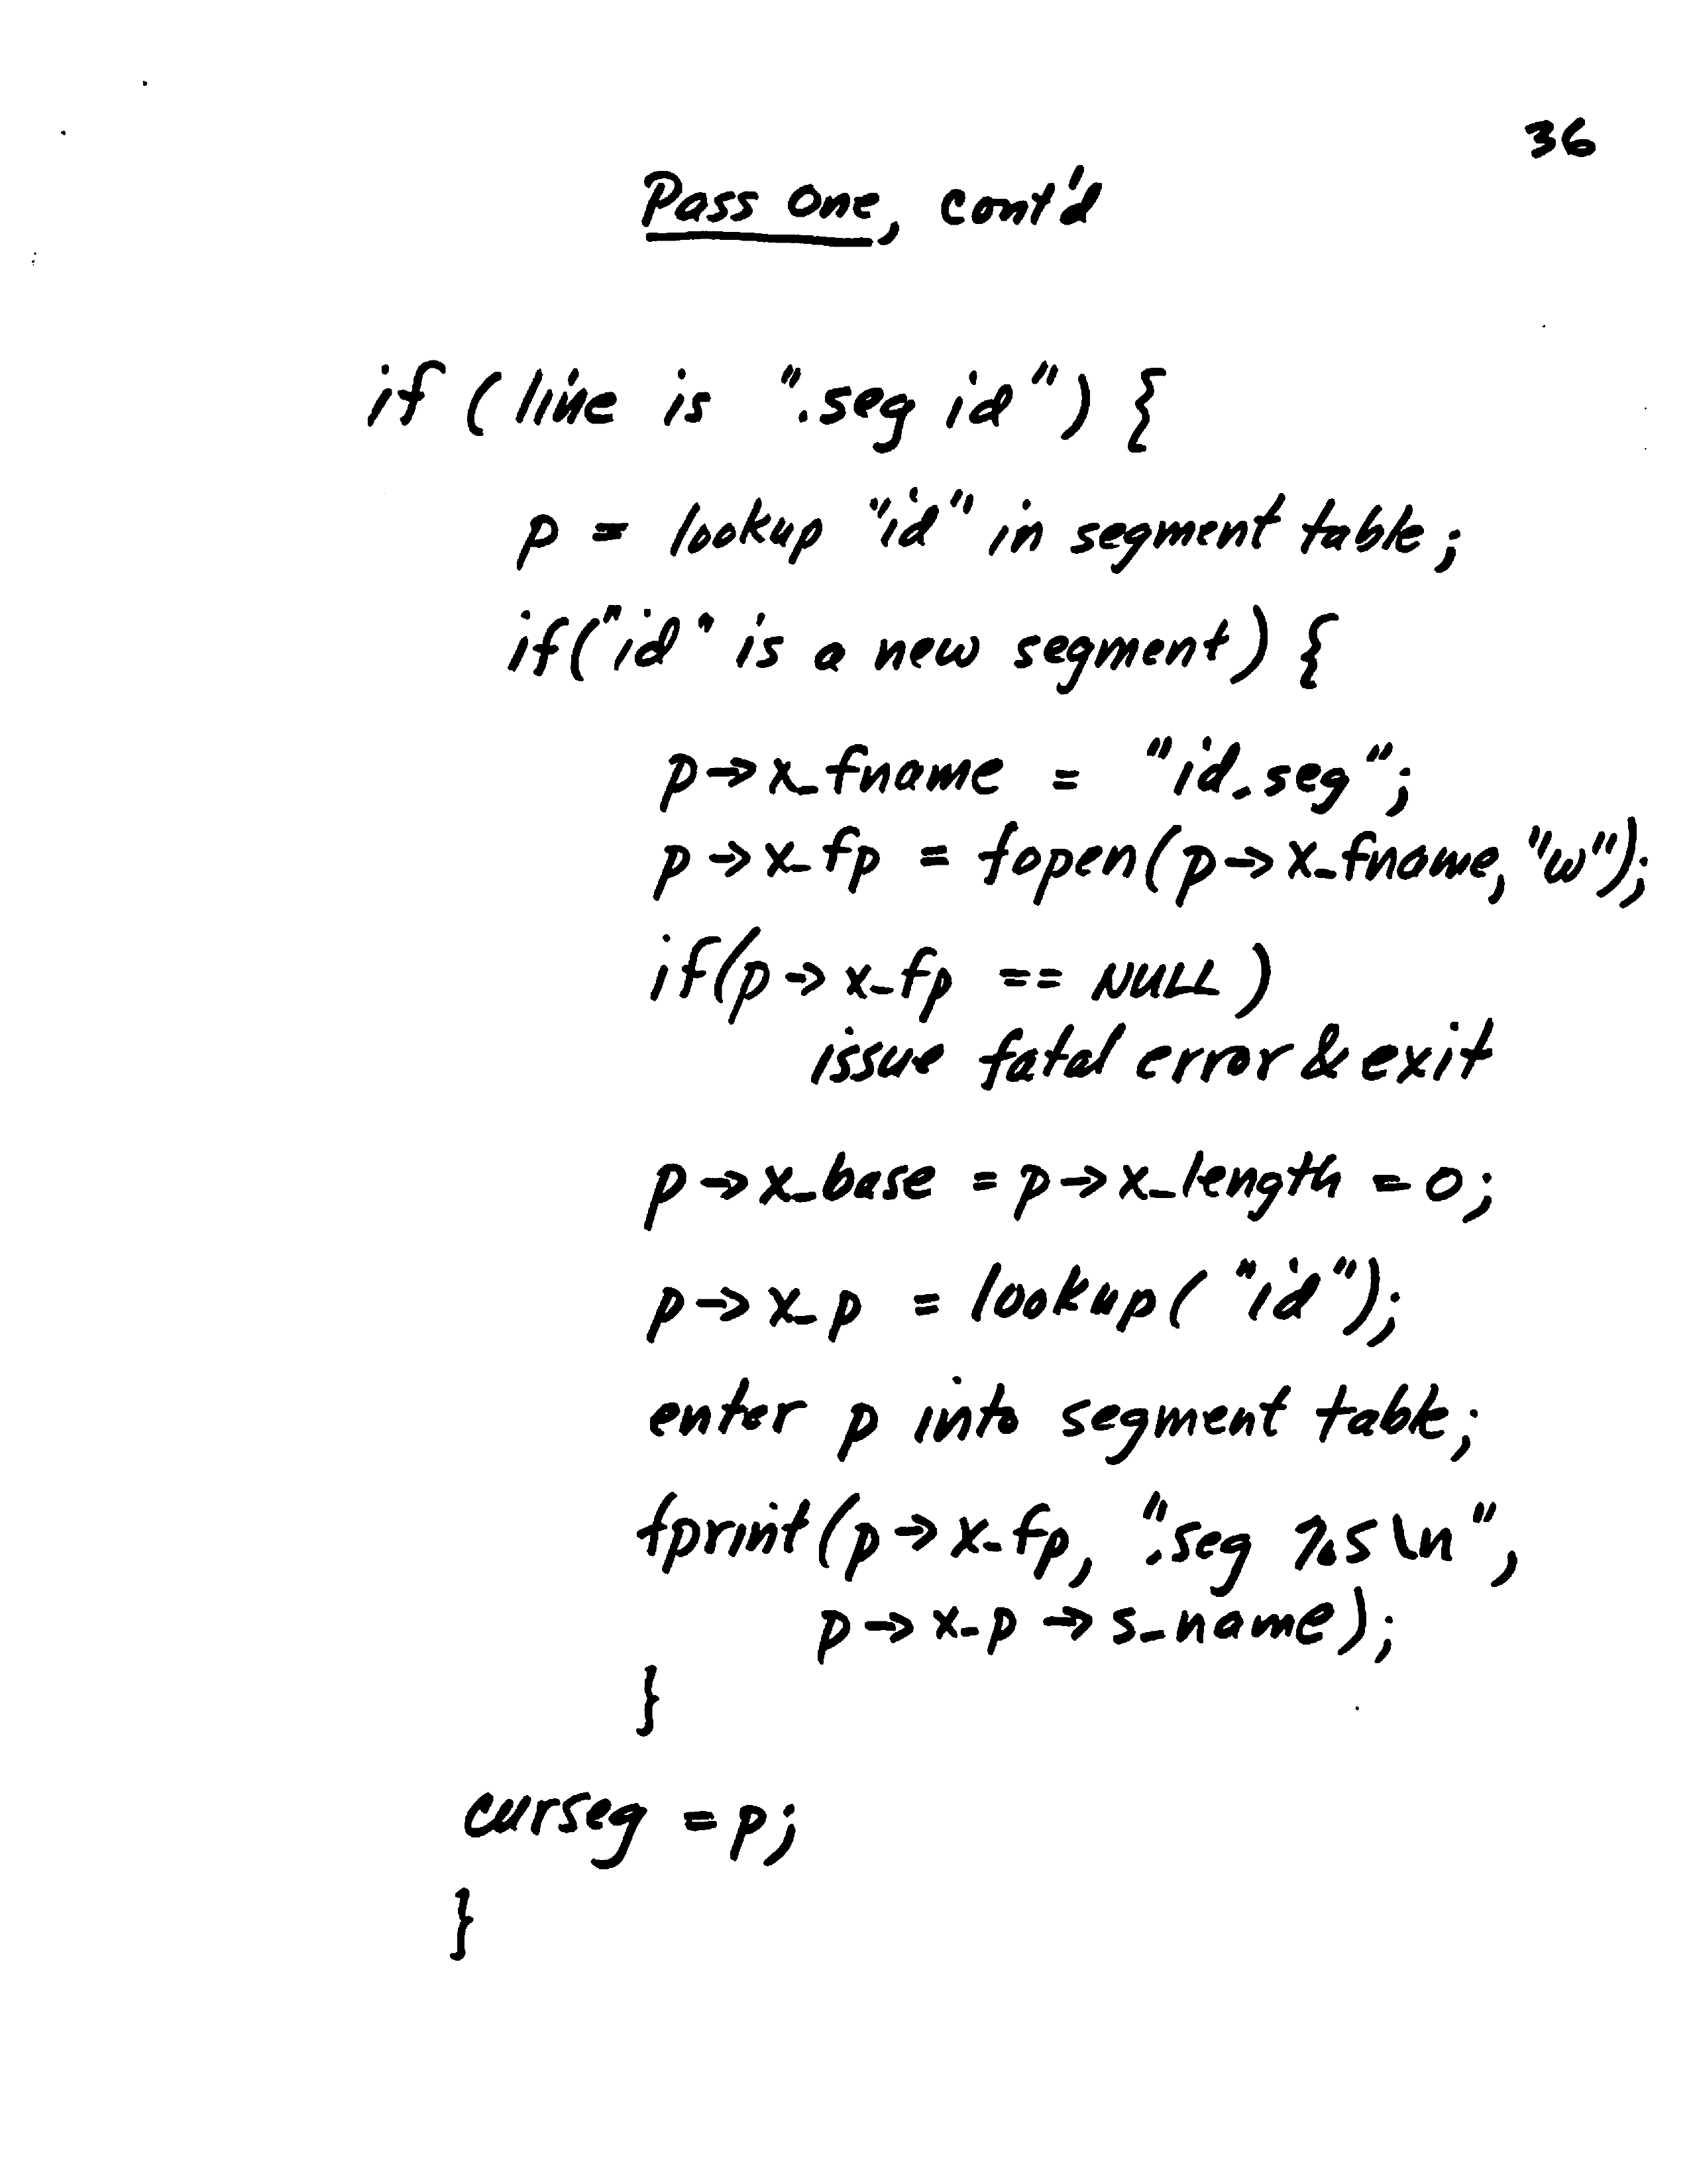 36
Pass One, cont'd
if (line is ".seg id") {
p = lookup "id" in segment table;
if("id" is a new segment) {
p->x_fname = "id.seg";
p->x_fp = fopen(p->x_fname, "w");
if(p->x_fp == NULL)
issue fatal error & exit
p->x_base = p->x_length = 0;
p->x_p = lookup("id");
enter p into segment table;
fprint(p->x_fp, ".seg %s\n",
p->x_p->s_name);
}
curseg = p;
}